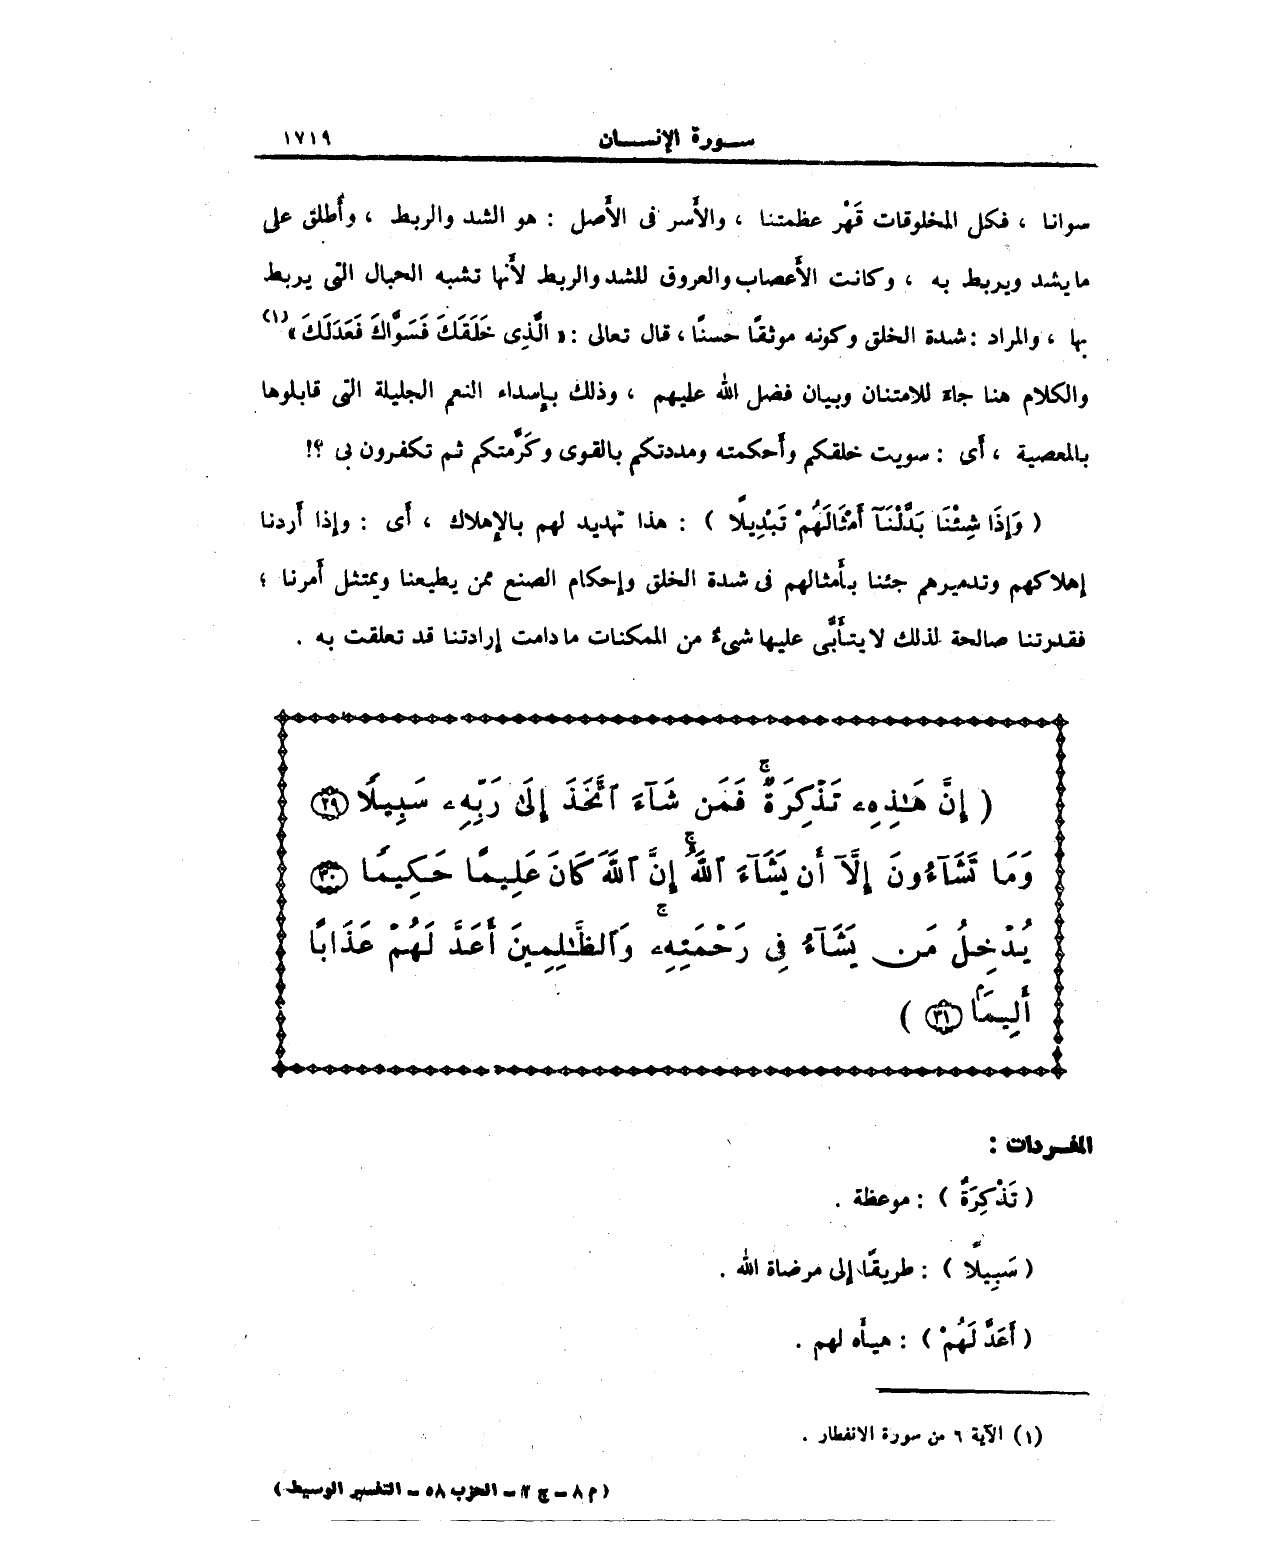 سورة الإنسان ١٧١٩
سوانا ، فكل المخلوقات قَهْر عظمتنا ، والأَسر فى الأَصل : هو الشد والربط ، وأُطلق على
ما يشد ويربط به ، وكانت الأَعصاب والعروق للشد والربط لأَنها تشبه الحبال التى يربط
بها ، والمراد : شدة الخلق وكونه موثقًا حسنًا ، قال تعالى : « الَّذِى خَلَقَكَ فَسَوَّاكَ فَعَدَلَكَ » (١)
والكلام هنا جاءَ للامتنان وبيان فضل الله عليهم ، وذلك بإسداء النعم الجليلة التى قابلوها
بالمعصية ، أَى : سويت خلقكم وأَحكمته ومددتكم بالقوى وكَرَّمتكم ثم تكفرون بى ؟!
( وَإِذَا شِئْنَا بَدَّلْنَآ أَمْثَالَهُمْ تَبْدِيلًا ) : هذا تهديد لهم بالإهلاك ، أَى : وإذا أَردنا
إهلاكهم وتدميرهم جئنا بأَمثالهم فى شدة الخلق وإحكام الصنع ممن يطيعنا ويمتثل أَمرنا ؛
فقدرتنا صالحة لذلك لا يتأَبَّى عليها شىءٌ من الممكنات ما دامت إرادتنا قد تعلقت به .
( إِنَّ هَـٰذِهِۦ تَذْكِرَةٌ ۖ فَمَن شَآءَ ٱتَّخَذَ إِلَىٰ رَبِّهِۦ سَبِيلًا ٢٩
وَمَا تَشَآءُونَ إِلَّآ أَن يَشَآءَ ٱللَّهُ ۚ إِنَّ ٱللَّهَ كَانَ عَلِيمًا حَكِيمًا ٣٠
يُدْخِلُ مَن يَشَآءُ فِى رَحْمَتِهِۦ ۚ وَٱلظَّـٰلِمِينَ أَعَدَّ لَهُمْ عَذَابًا
أَلِيمًا ٣١ )
المفردات :
( تَذْكِرَةٌ ) : موعظة .
( سَبِيلًا ) : طريقًا إلى مرضاة الله .
( أَعَدَّ لَهُمْ ) : هيأَه لهم .
(١) الآية ٦ من سورة الانفطار .
(م ٨ – ج ٣ – الحزب ٥٨ – التفسير الوسيط)